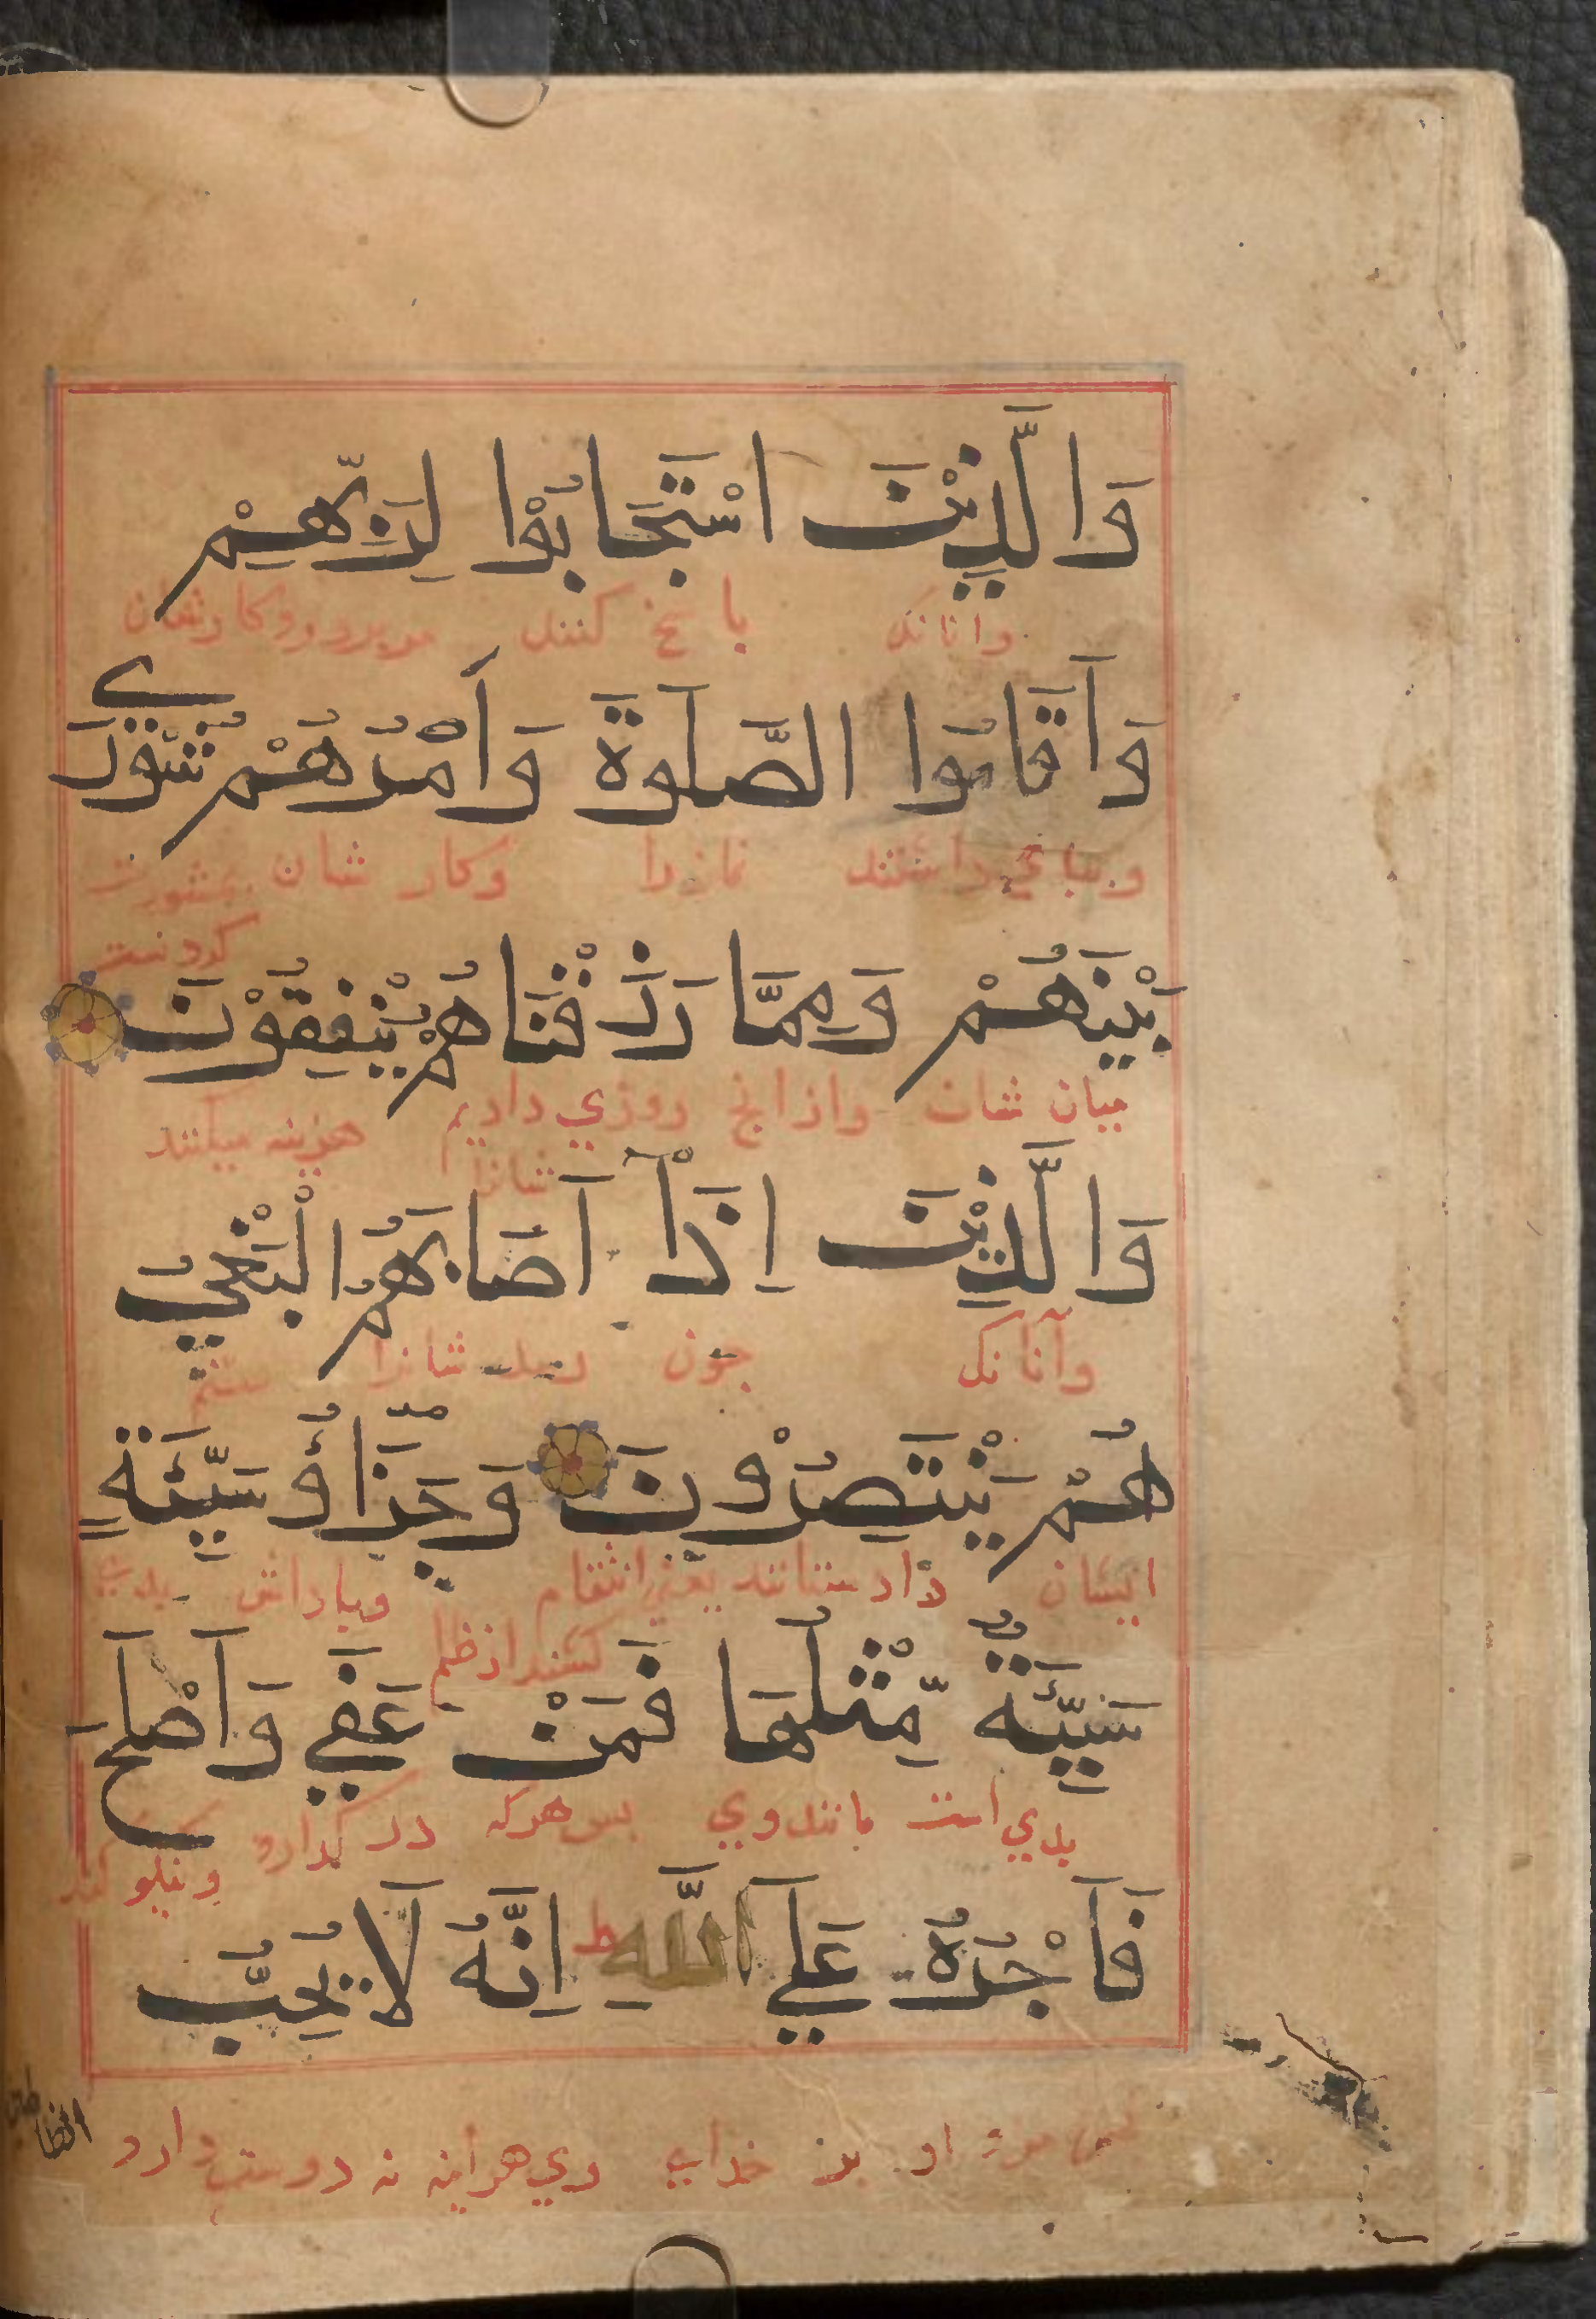 وَالَّذِيْنَ اسْتَجَابُوْا لِرَبِّهِمْ
وانانک با سخ کنند مر برورد کارشان
وَاَقَامُوا الصَّلٰوةَ وَاَمْرُهُمْ شُوْرٰي
وبباي داشتند نمازرا وکار شان بمشورت
کردنست
بَيْنَهُمْ وَمِمَّا رَزَقْنَاهُمْ يُنْفِقُوْنَ
ميان شان وازانج روزي داديم هزينه ميکنند
شانرا
وَالَّذِيْنَ اِذَاۤ اَصَابَهُمُ الْبَغْيُ
وآنانک جون رسد شانرا ستم
هُمْ يَنْتَصِرُوْنَ وَجَزَاۤؤُ سَيِّئَةٍ
ايشان داد ستانند يعني انتقام وباداش بدي
کشند از ظلم
سَيِّئَةٌ مِّثْلُهَا فَمَنْ عَفٰي وَاَصْلَحَ
بدي است مانندوي بس هرکه درکدارد ونيکو کند
فَاَجْرُهٗ عَلَي اللّٰهِ ط اِنَّهٗ لَا يُحِبُّ
بس مزد او بر خداي وي هراينه نه دوست دارد
الظالمين